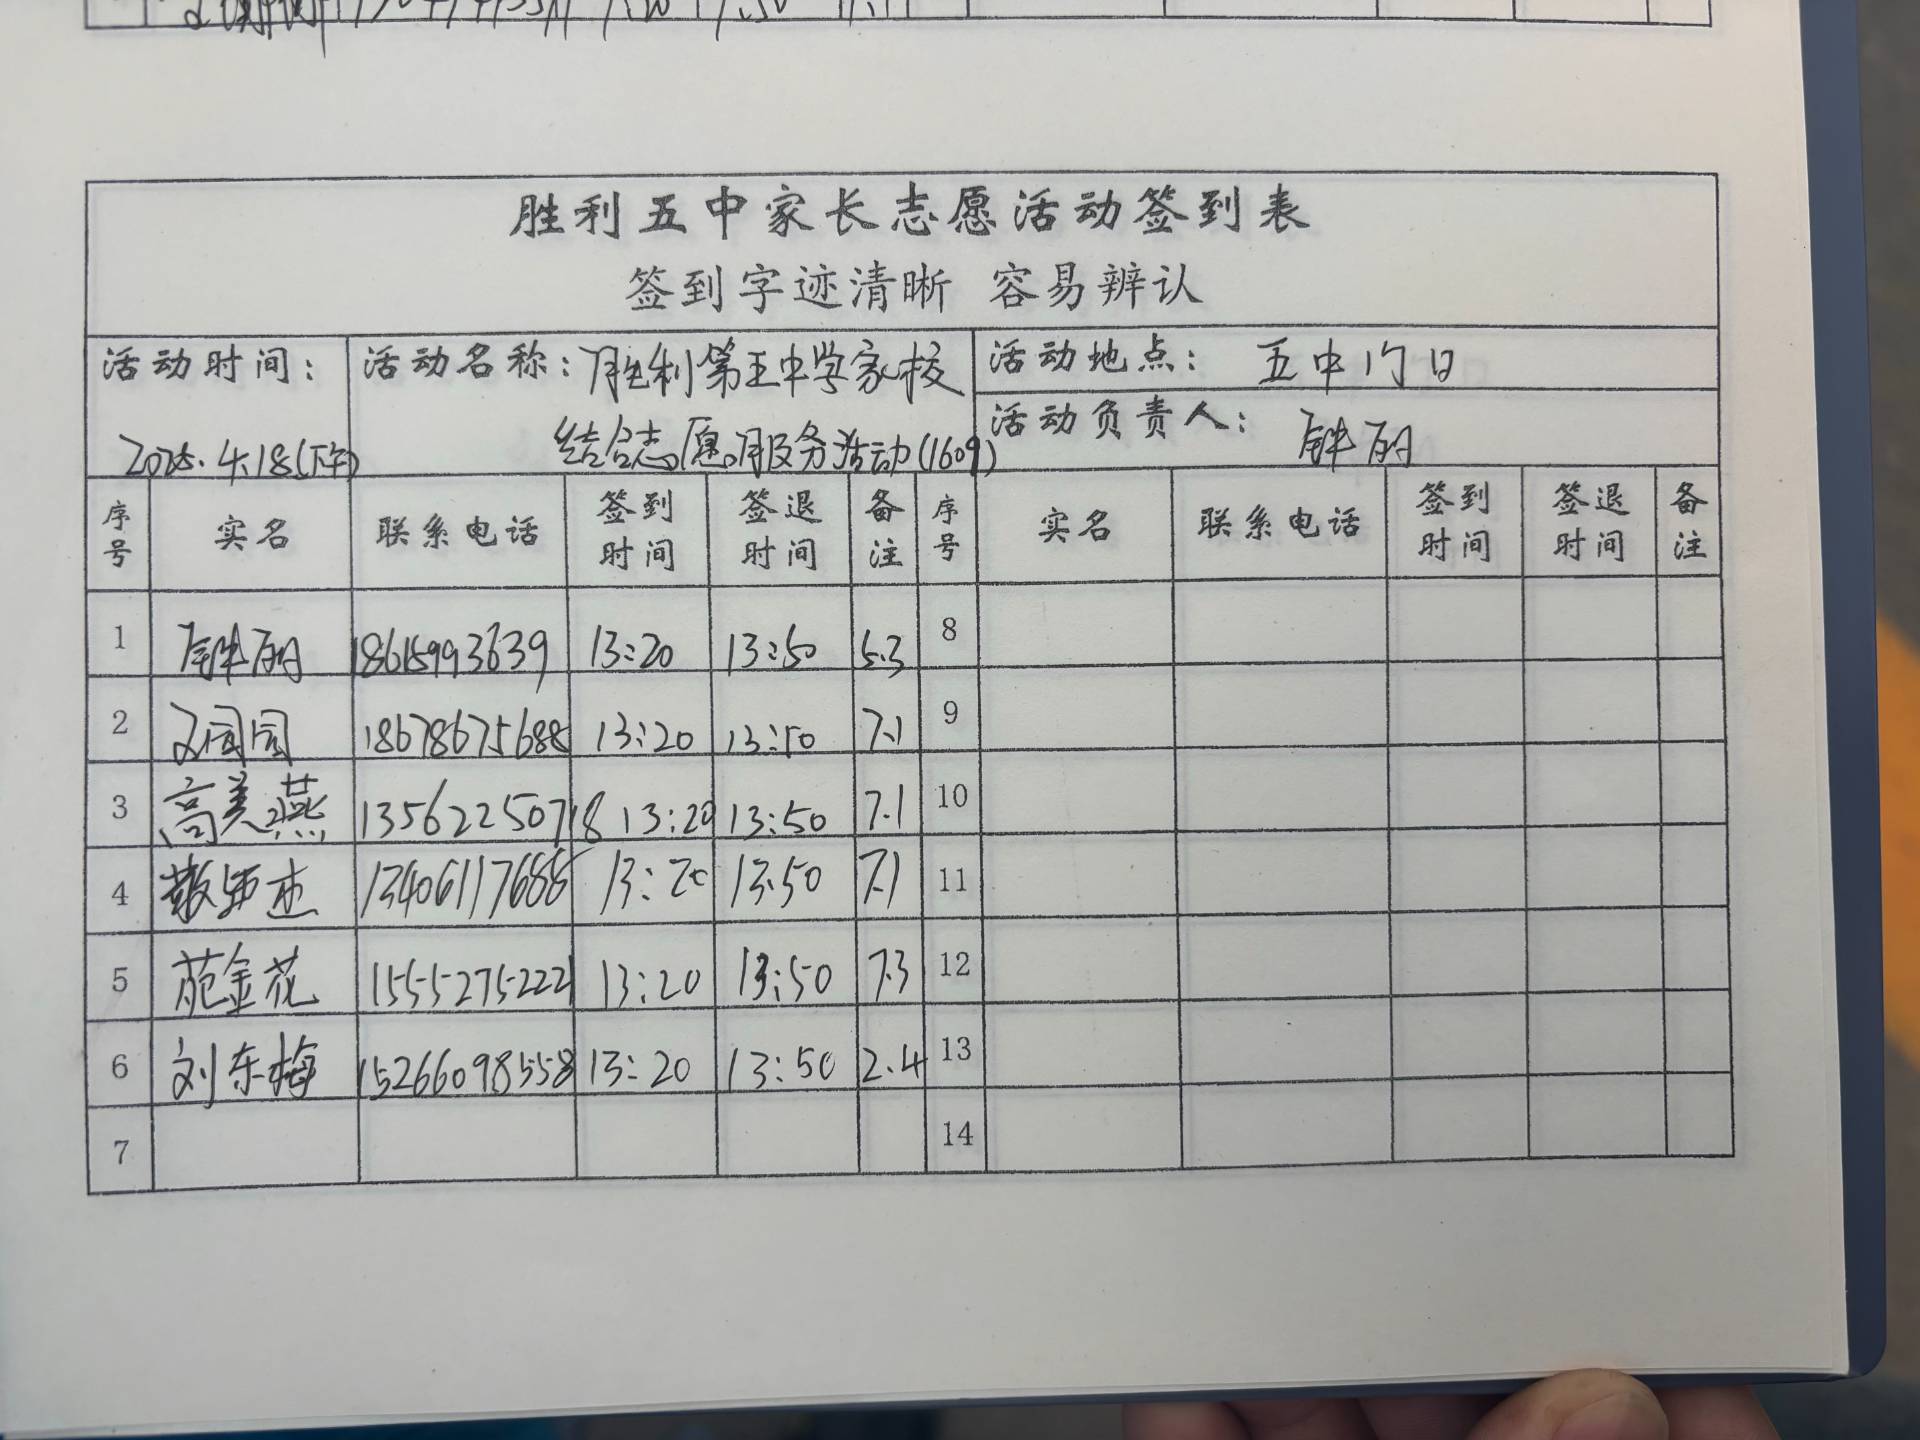 胜利五中家长志愿活动签到表
签到字迹清晰 容易辨认
活动时间: 活动名称:胜利第五中学家校 活动地点: 五中门口
2025.4.18(下午) 结合志愿服务活动(1609) 活动负责人: 丽
序号 实名 联系电话 签到时间 签退时间 备注 序号 实名 联系电话 签到时间 签退时间 备注
1 丽 18615993639 13:20 13:50 5.3 8
2 18678675688 13:20 13:50 7.1 9
3 高美燕 13562250718 13:20 13:50 7.1 10
4 13406117688 13:20 13:50 7.1 11
5 范金花 15552752221 13:20 13:50 7.3 12
6 刘东梅 15266098558 13:20 13:50 2.4 13
7 14